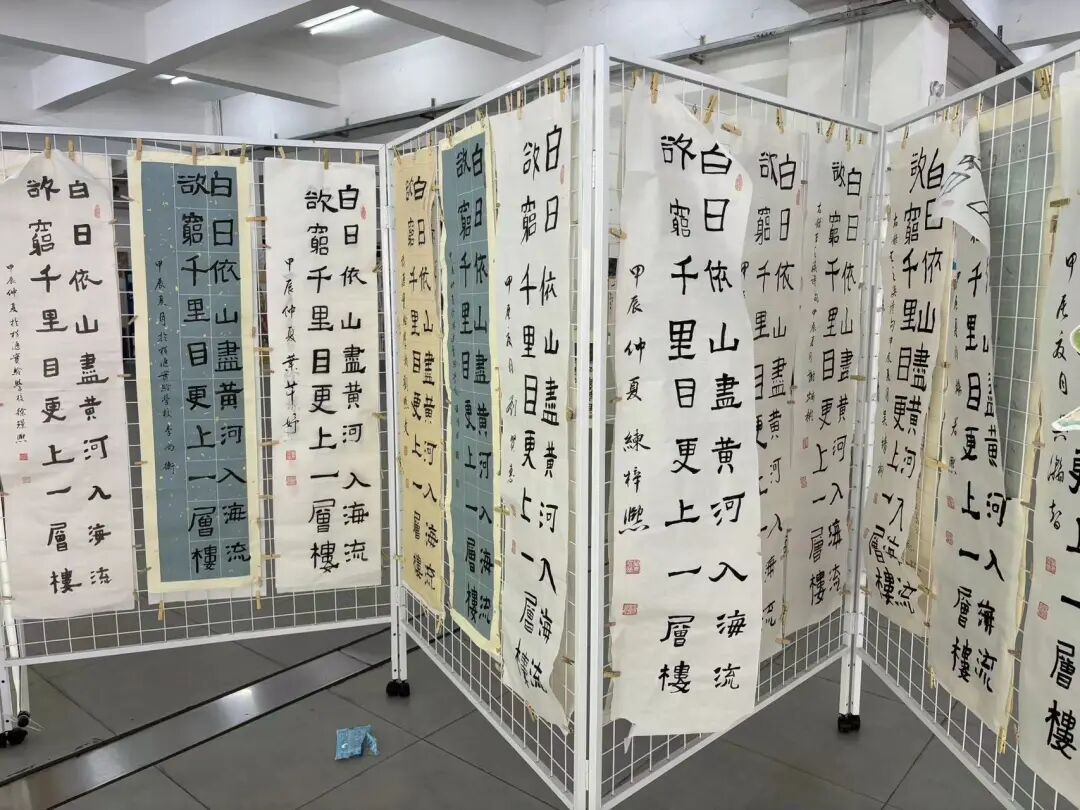 白日依山盡黄河入海流
欲窮千里目更上一層樓
甲辰仲夏於實驗學校徐瑾熙
白日依山盡黄河入海流
欲窮千里目更上一層樓
甲辰夏月於實驗學校李尚衡
白日依山盡黄河入海流
欲窮千里目更上一層樓
甲辰仲夏葉芊妤
白日依山盡黄河入海流
欲窮千里目更上一層樓
白日依山盡黄河入海流
欲窮千里目更上一層樓
白日依山盡黄河入海流
欲窮千里目更上一層樓
甲辰夏月劉
白日依山盡黄河入海流
欲窮千里目更上一層樓
甲辰仲夏練梓熙
白日依山盡黄河入海流
欲窮千里目更上一
白日依山盡黄河入海流
欲窮千里目更上一層樓
右録王之涣詩句甲辰夏月謝
白日依山盡黄河入海流
欲窮千里目更上一層樓
右録王之涣詩句甲辰夏月吴
山盡黄河入海流
千里目更上一層樓
甲辰夏月
一層樓